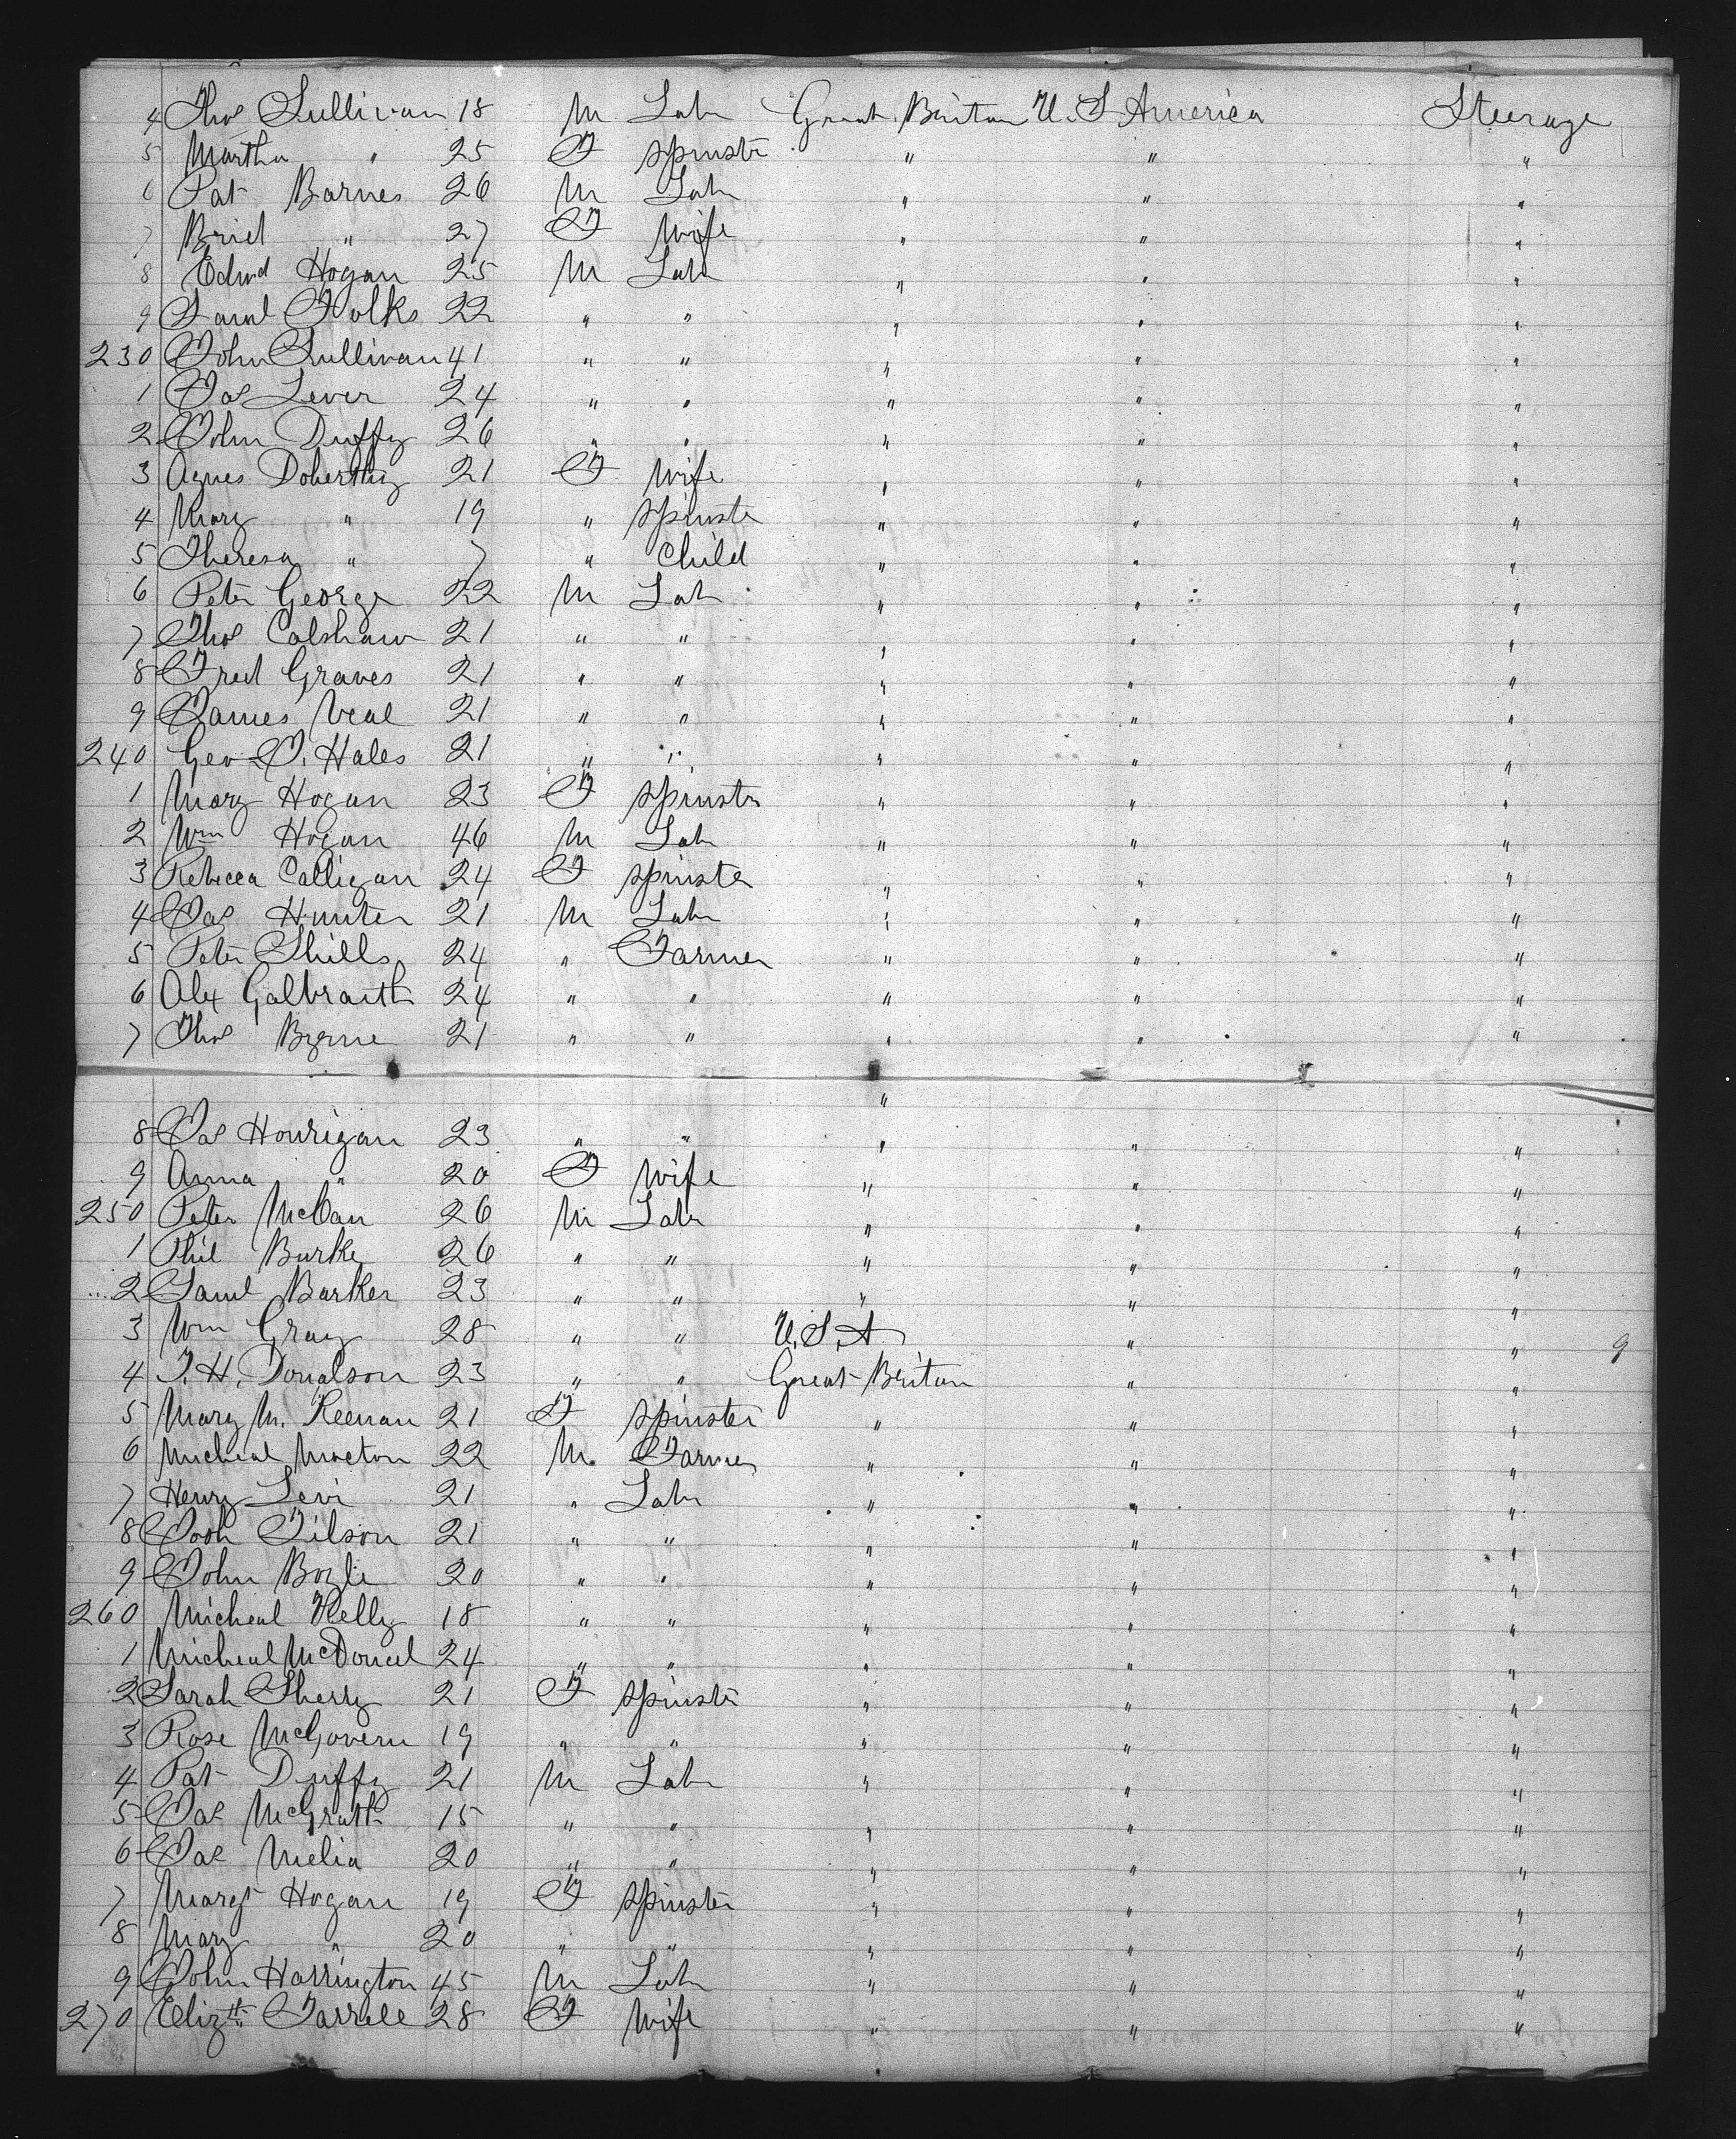 4 Thos Sullivan 18 M Labr Great Britan U.S America Steerage
5 Martha " 25 F Spinstr " " "
6 Pat Barnes 26 M Labr " " "
7 Brid " 27 F Wife " " "
8 Edwd Hogan 25 M Labr " " "
9 Saml Folks 22 " " " " "
230 John Sullivan 41 " " " " "
1 Jas Lever 24 " " " " "
2 John Duffy 26 " " " " "
3 Agnes Doherthy 21 F Wife " " "
4 Mary " 19 " Spinste " " "
5 Theresa " 7 " Child " " "
6 Peter George 22 M Labr " " "
7 Thos Calshaw 21 " " " " "
8 Fred Graves 21 " " " " "
9 James Veal 21 " " " " "
240 Geo J. Hales 21 " " " " "
1 Mary Hogan 23 F Spinstr " " "
2 Wm Hogan 46 M Labr " " "
3 Rebecca Calligan 24 F Spinster " " "
4 Jas Hunter 21 M Labr " " "
5 Peter Shills 24 " Farmer " " "
6 Alex Galbraith 24 " " " " "
7 Thos Byrne 21 " " " " "
"
8 Jas Hourigan 23 " " " " "
9 Anna " 20 F Wife " " "
250 Peter McCan 26 M Labr " " "
1 Phil Burke 26 " " " " "
2 Saml Barker 23 " " " " "
3 Wm Gray 28 " " U.S.A " " 9
4 T.H. Donalson 23 " " Great Britan " "
5 Mary M. Keenan 21 F Spinster " " "
6 Micheal 22 M. Farmer " " "
7 Henry Levi 21 " Labr " " "
8 Josh Tilson 21 " " " " "
9 John Boyle 20 " " " " "
260 Micheal Kelly 18 " " " " "
1 Micheal McDonel 24 " " " " "
2 Sarah Sherry 21 F Spinstr " " "
3 Rose McGovern 19 " " " " "
4 Pat Duffy 21 M Labr " " "
5 Jas McGrath 15 " " " " "
6 Jas Melia 20 " " " " "
7 Margt Hogan 19 F Spinster " " "
8 Mary " 20 " " " " "
9 John Harrington 45 M Labr " " "
270 Elizth Farrell 28 F Wife " " "